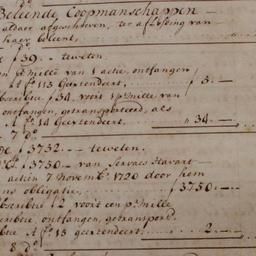 Beleende Coopmanschappen
aldaer afgeschreven, ter aflossing van
haer beleent,
ƒ39.- teweten.
p.r mille van 1 actie, ontfangen,
A f.o 113 Geextendeert, ƒ 5.-.-
ƒ34, voor 1 p.r mille van
ontfangen, getransporteerd, als
A f.o 14 Geextendeert. „ 34.-.-
7 d.o
ƒ3732.-.- teweten.
ƒ3750.- van Servaes Havart
actien 7 Novemb.r 1720 door hem
ns obligatie, ƒ3750.-.-
ƒ2 voor een p.r mille
ontfangen, getransport.
A f.o 13 geextendeert „ 2.-.-
8 d.o